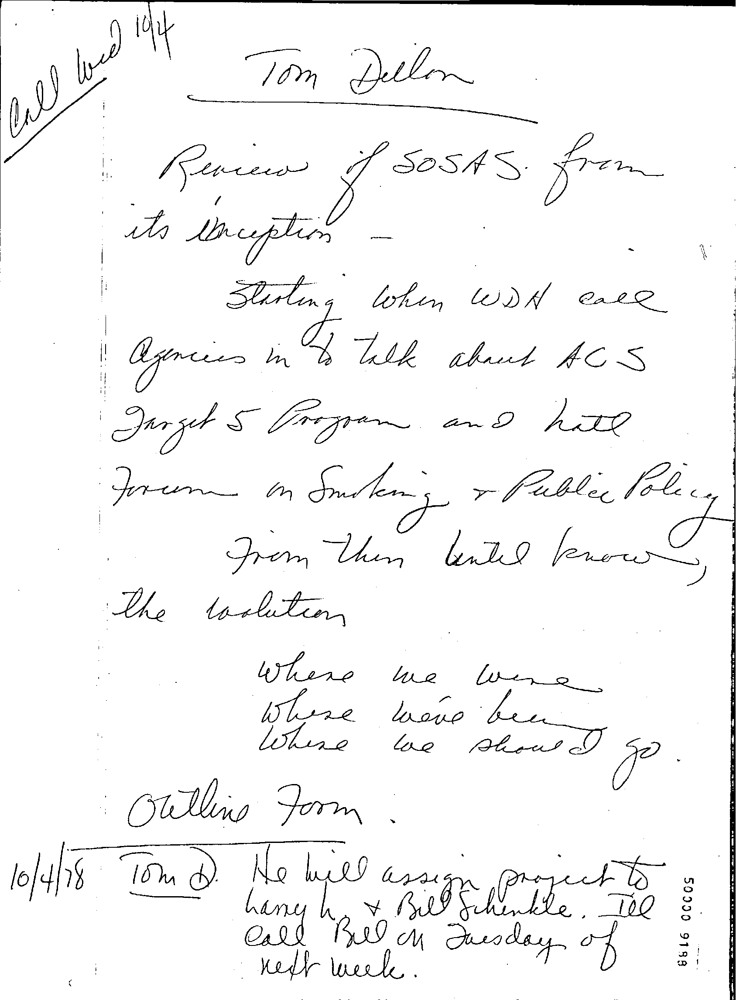 Call Wed 10/4
Tom Dillon
Review of SOSAS. from
its inception –
Starting when WDH call
agencies in to talk about ACS
Target 5 Program and natl
Forum on Smoking & Public Policy
From then until know,
the evolution
where we were
where we've been
where we should go.
Outline Form.
10/4/78 Tom D. He will assign project to
Larry h. & Bill Schenkle. I'll
call Bill on Tuesday of
next week.
50000 9199